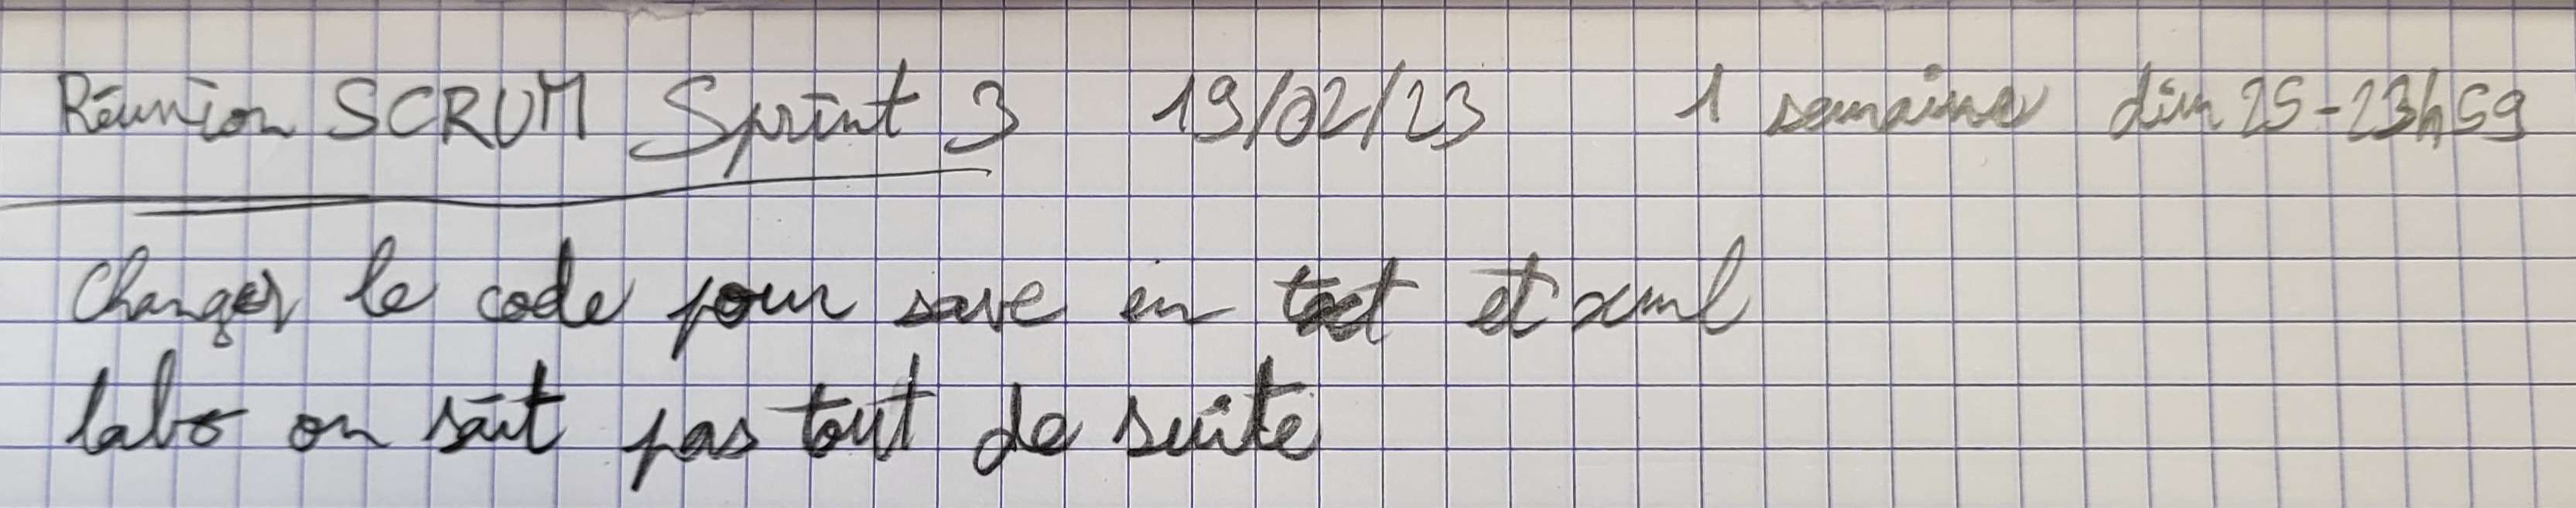 Réunion SCRUM Sprint 3 19/02/23 1 semaine dim 25-23h59
Changer le code pour save en txt et xml
labo on sait pas tout de suite